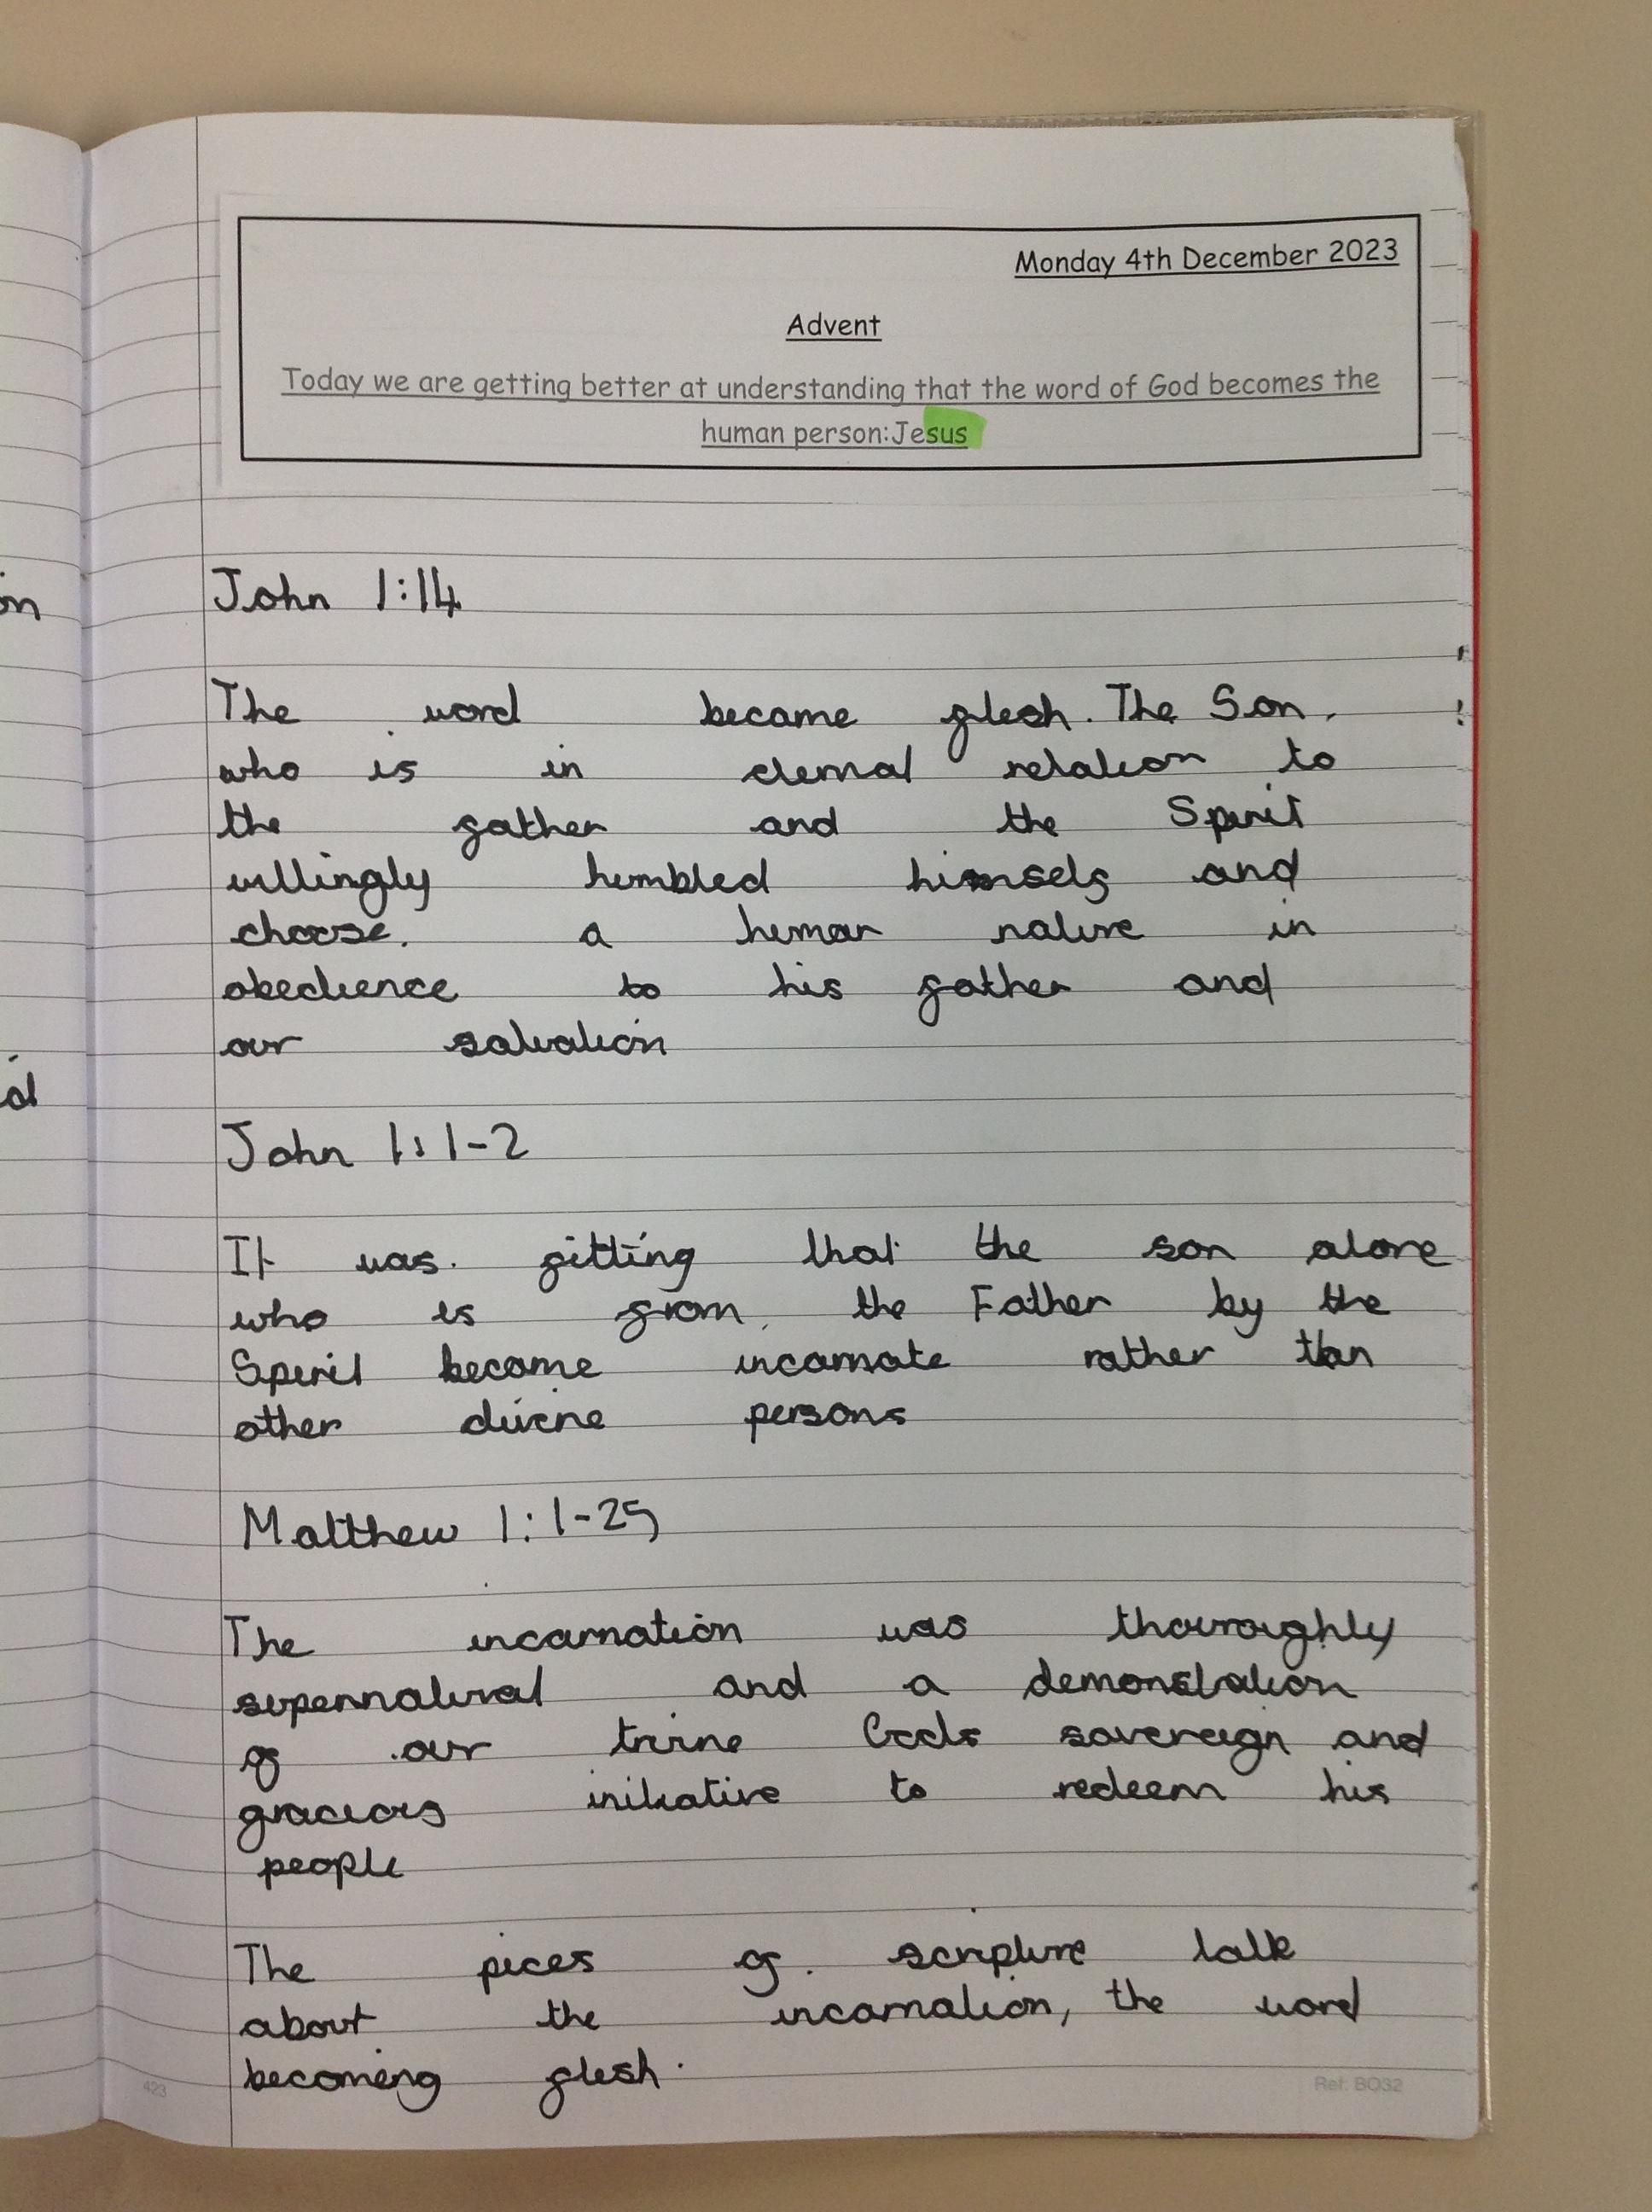 Monday 4th December 2023
Advent
Today we are getting better at understanding that the word of God becomes the
human person:Jesus
John 1:14
The word became flesh. The Son,
who is in eternal relation to
the father and the Spirit
willingly humbled himself and
choose. a human nature in
obedience to his father and
our salvation
John 1:1-2
It was fitting that the son alone
who is from the Father by the
Spirit became incarnate rather than
other divine persons
Matthew 1:1-25
The incarnation was thouroughly
supernatural and a demonstration
of our triune Gods sovereign and
gracious initiative to redeem his
people
The peces of scripture talk
about the incarnation, the word
becoming flesh.
423
Ref: BO32
on
d